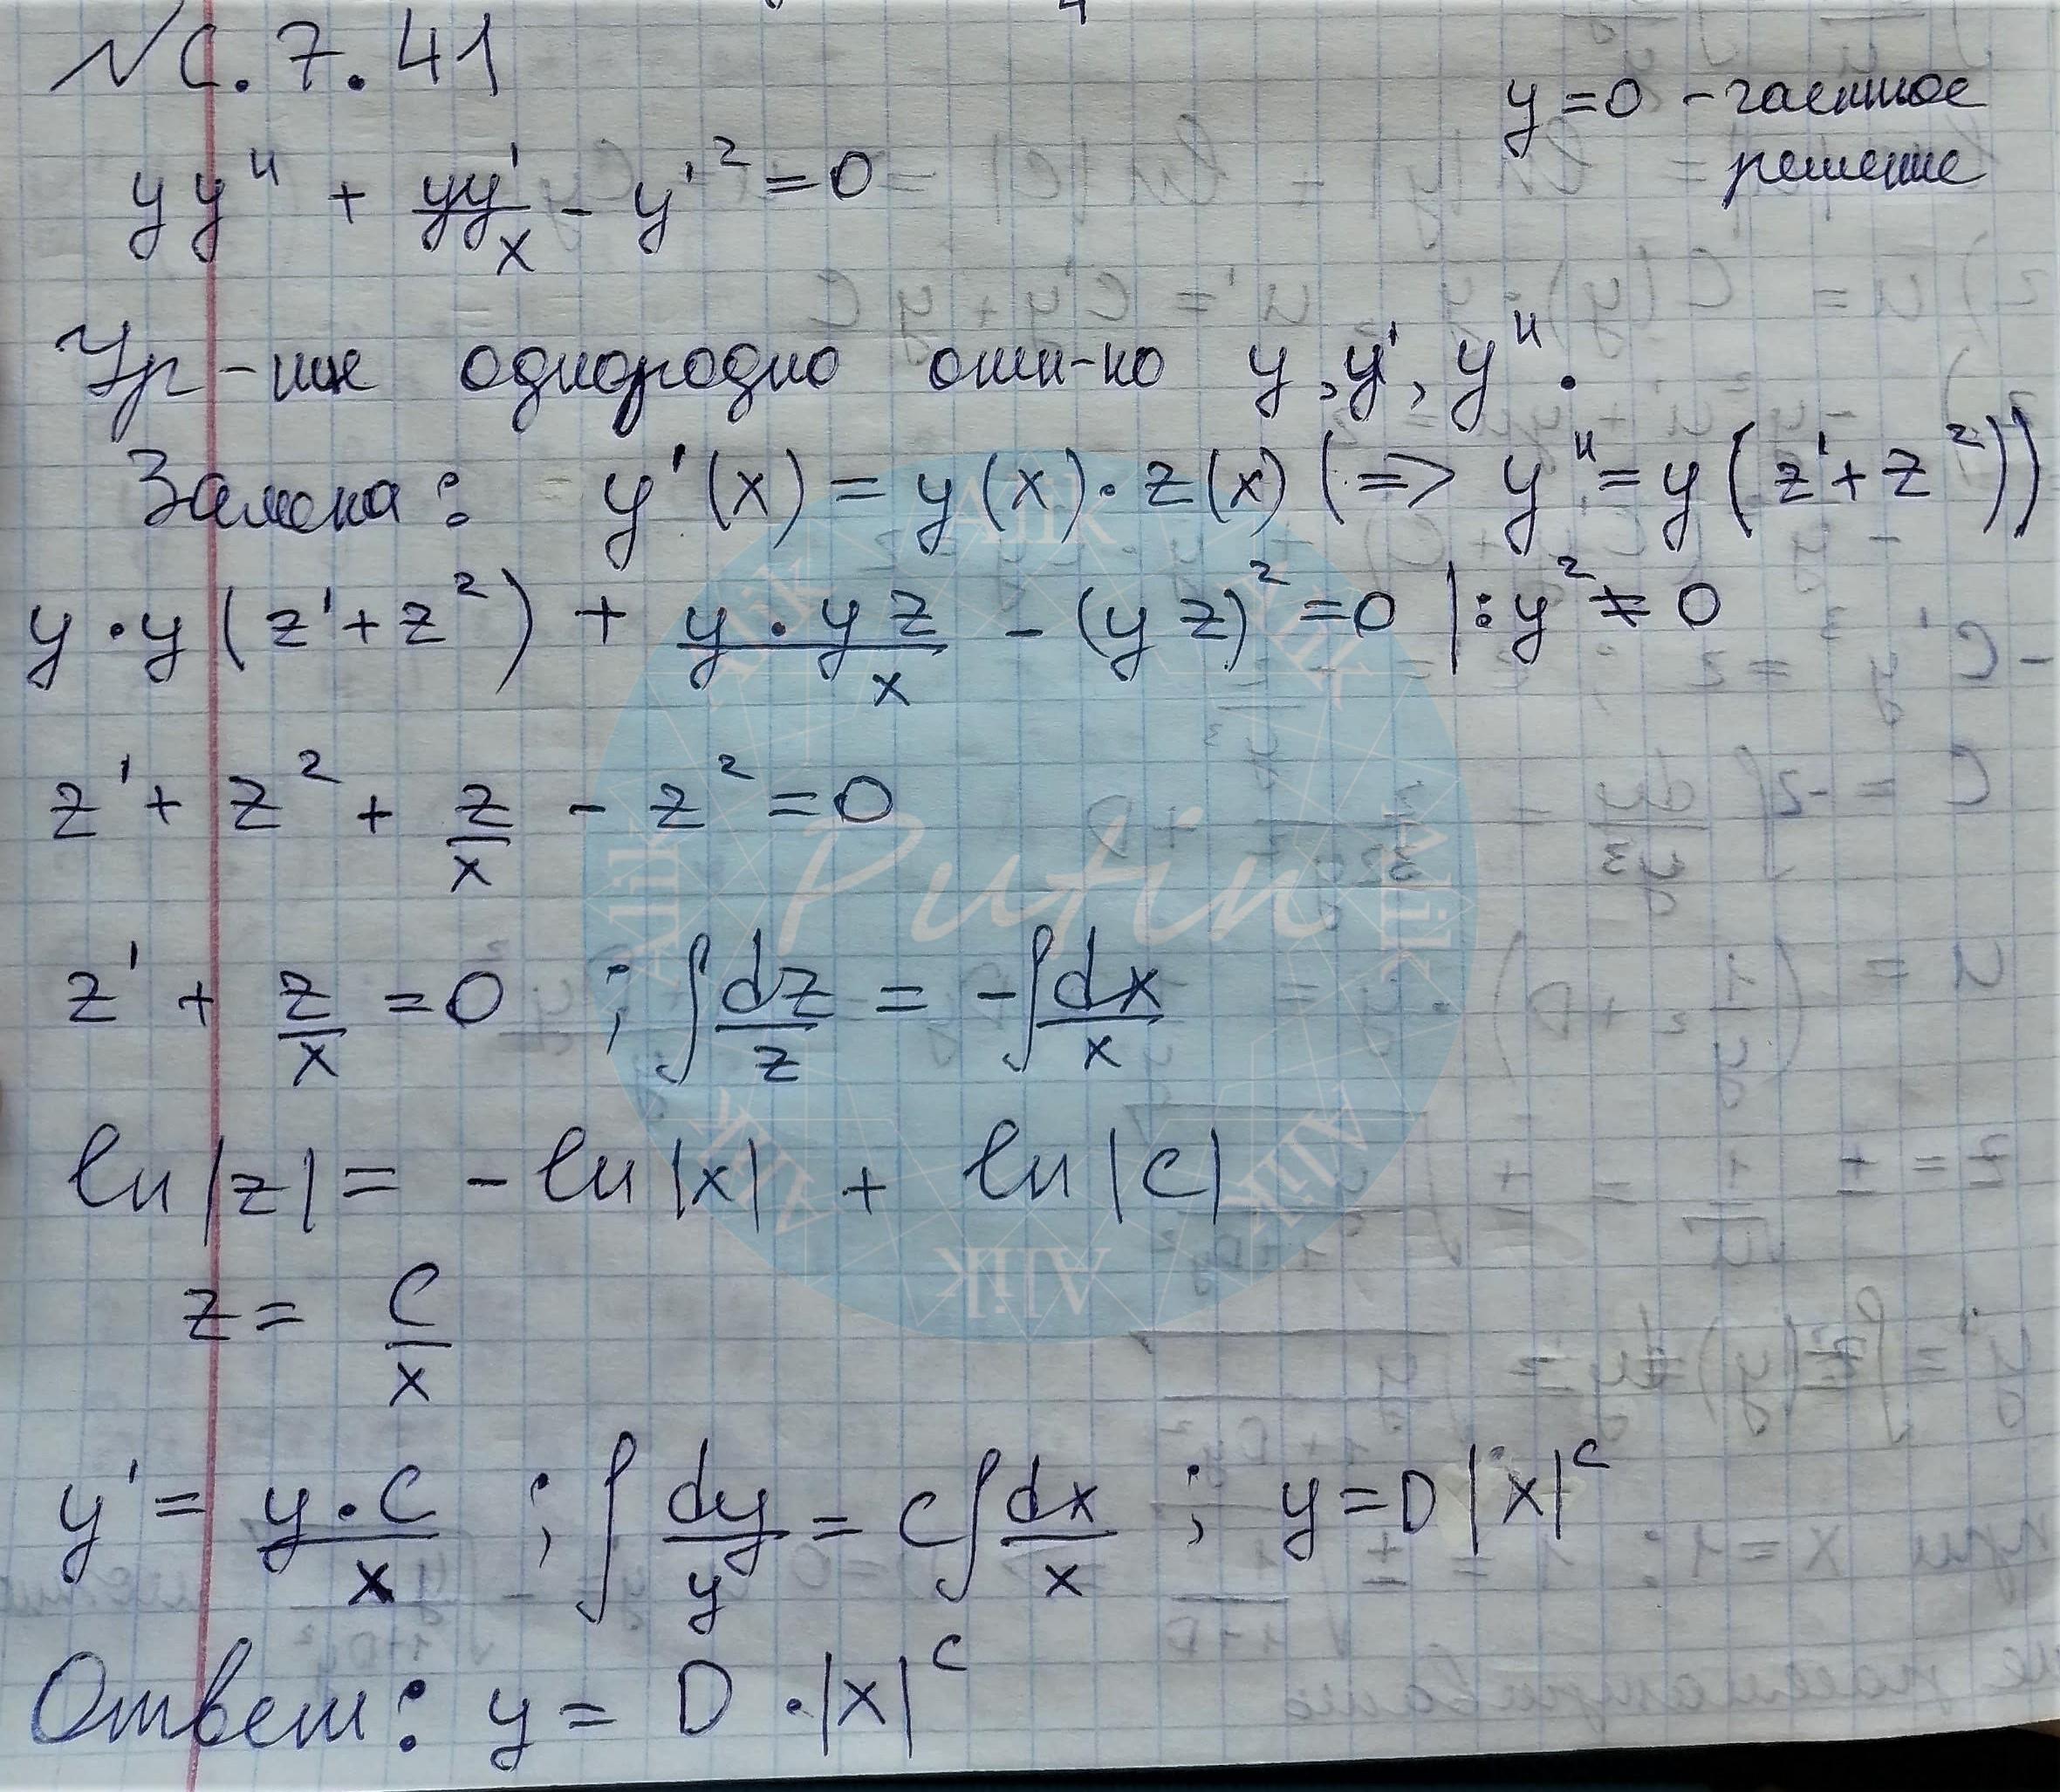 № С.7.41
y = 0 - частное
решение
yy'' + yy'/x - y'² = 0
Ур-ние однородно отн-но y, y', y''.
Замена: y'(x) = y(x)·z(x) (=> y'' = y(z'+z²))
y·y(z'+z²) + y·yz/x - (yz)² = 0 |: y² ≠ 0
z' + z² + z/x - z² = 0
z' + z/x = 0 ; ∫dz/z = -∫dx/x
ln|z| = -ln|x| + ln|C|
z = C/x
y' = y·C/x ; ∫dy/y = C∫dx/x ; y = D|x|^C
Ответ: y = D·|x|^C
Putin
Alik Alik Alik Alik Alik Alik Alik Alik